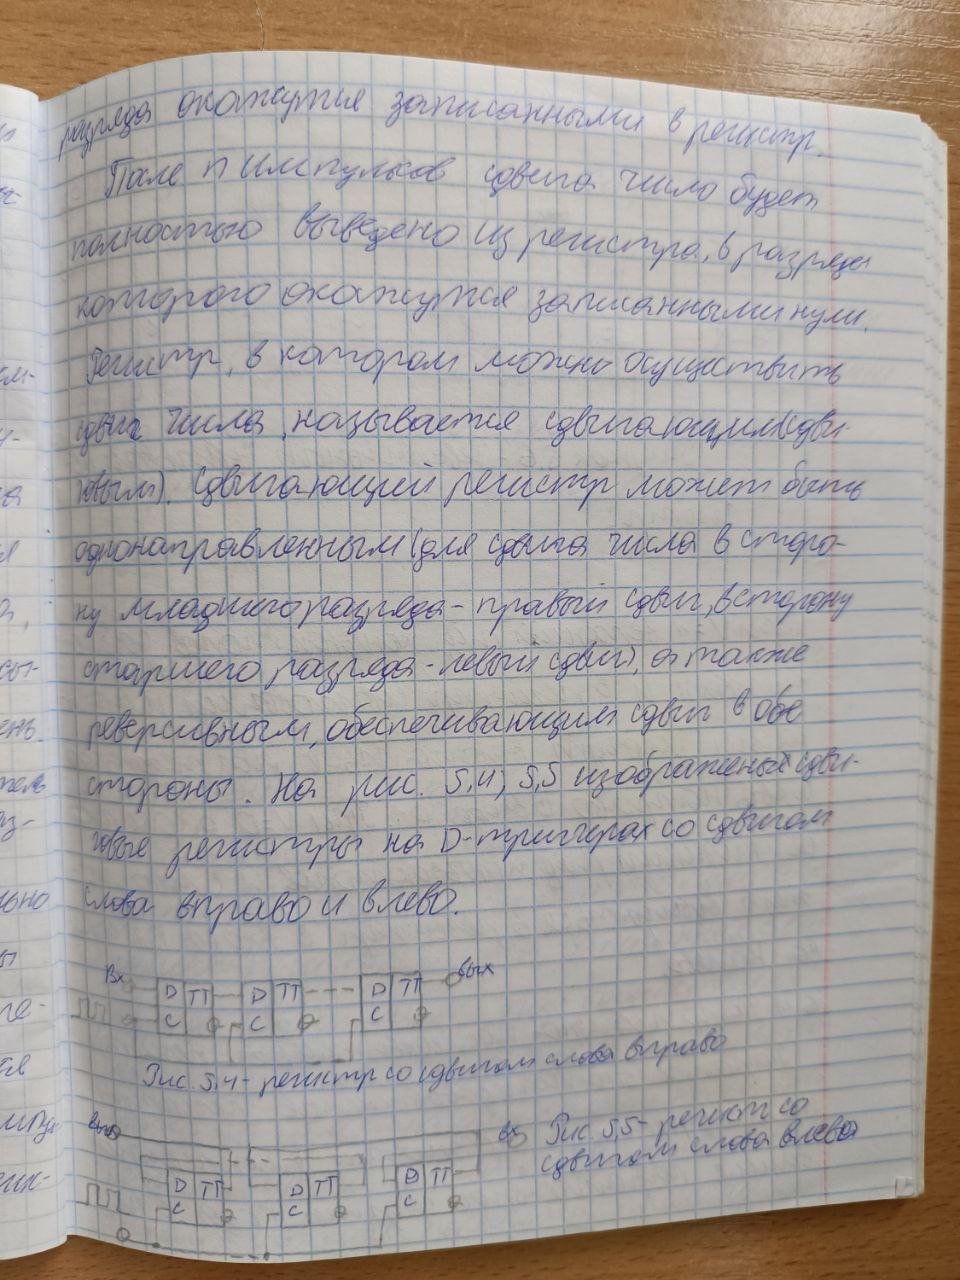 разряда окажутся записанными в регистр.
После n импульсов сдвига число будет
полностью выведено из регистра, в разряды
которого окажутся записанными нули.
Регистр, в котором можно осуществить
сдвиг числа, называется сдвигающим (сдви-
говым). Сдвигающий регистр может быть
однонаправленным (для сдвига числа в сторо-
ну младшего разряда - правый сдвиг, в сторону
старшего разряда - левый сдвиг), а также
реверсивным, обеспечивающим сдвиг в обе
стороны. На рис. 5,4; 5,5 изображены сдви-
говые регистры на D-триггерах со сдвигом
слова вправо и влево.
Вх D TT D TT D TT Вых
C C C
Рис. 5,4 - регистр со сдвигом слова вправо
Вх Рис. 5,5 - регистр со
сдвигом слова влево
D TT D TT D TT
C C C